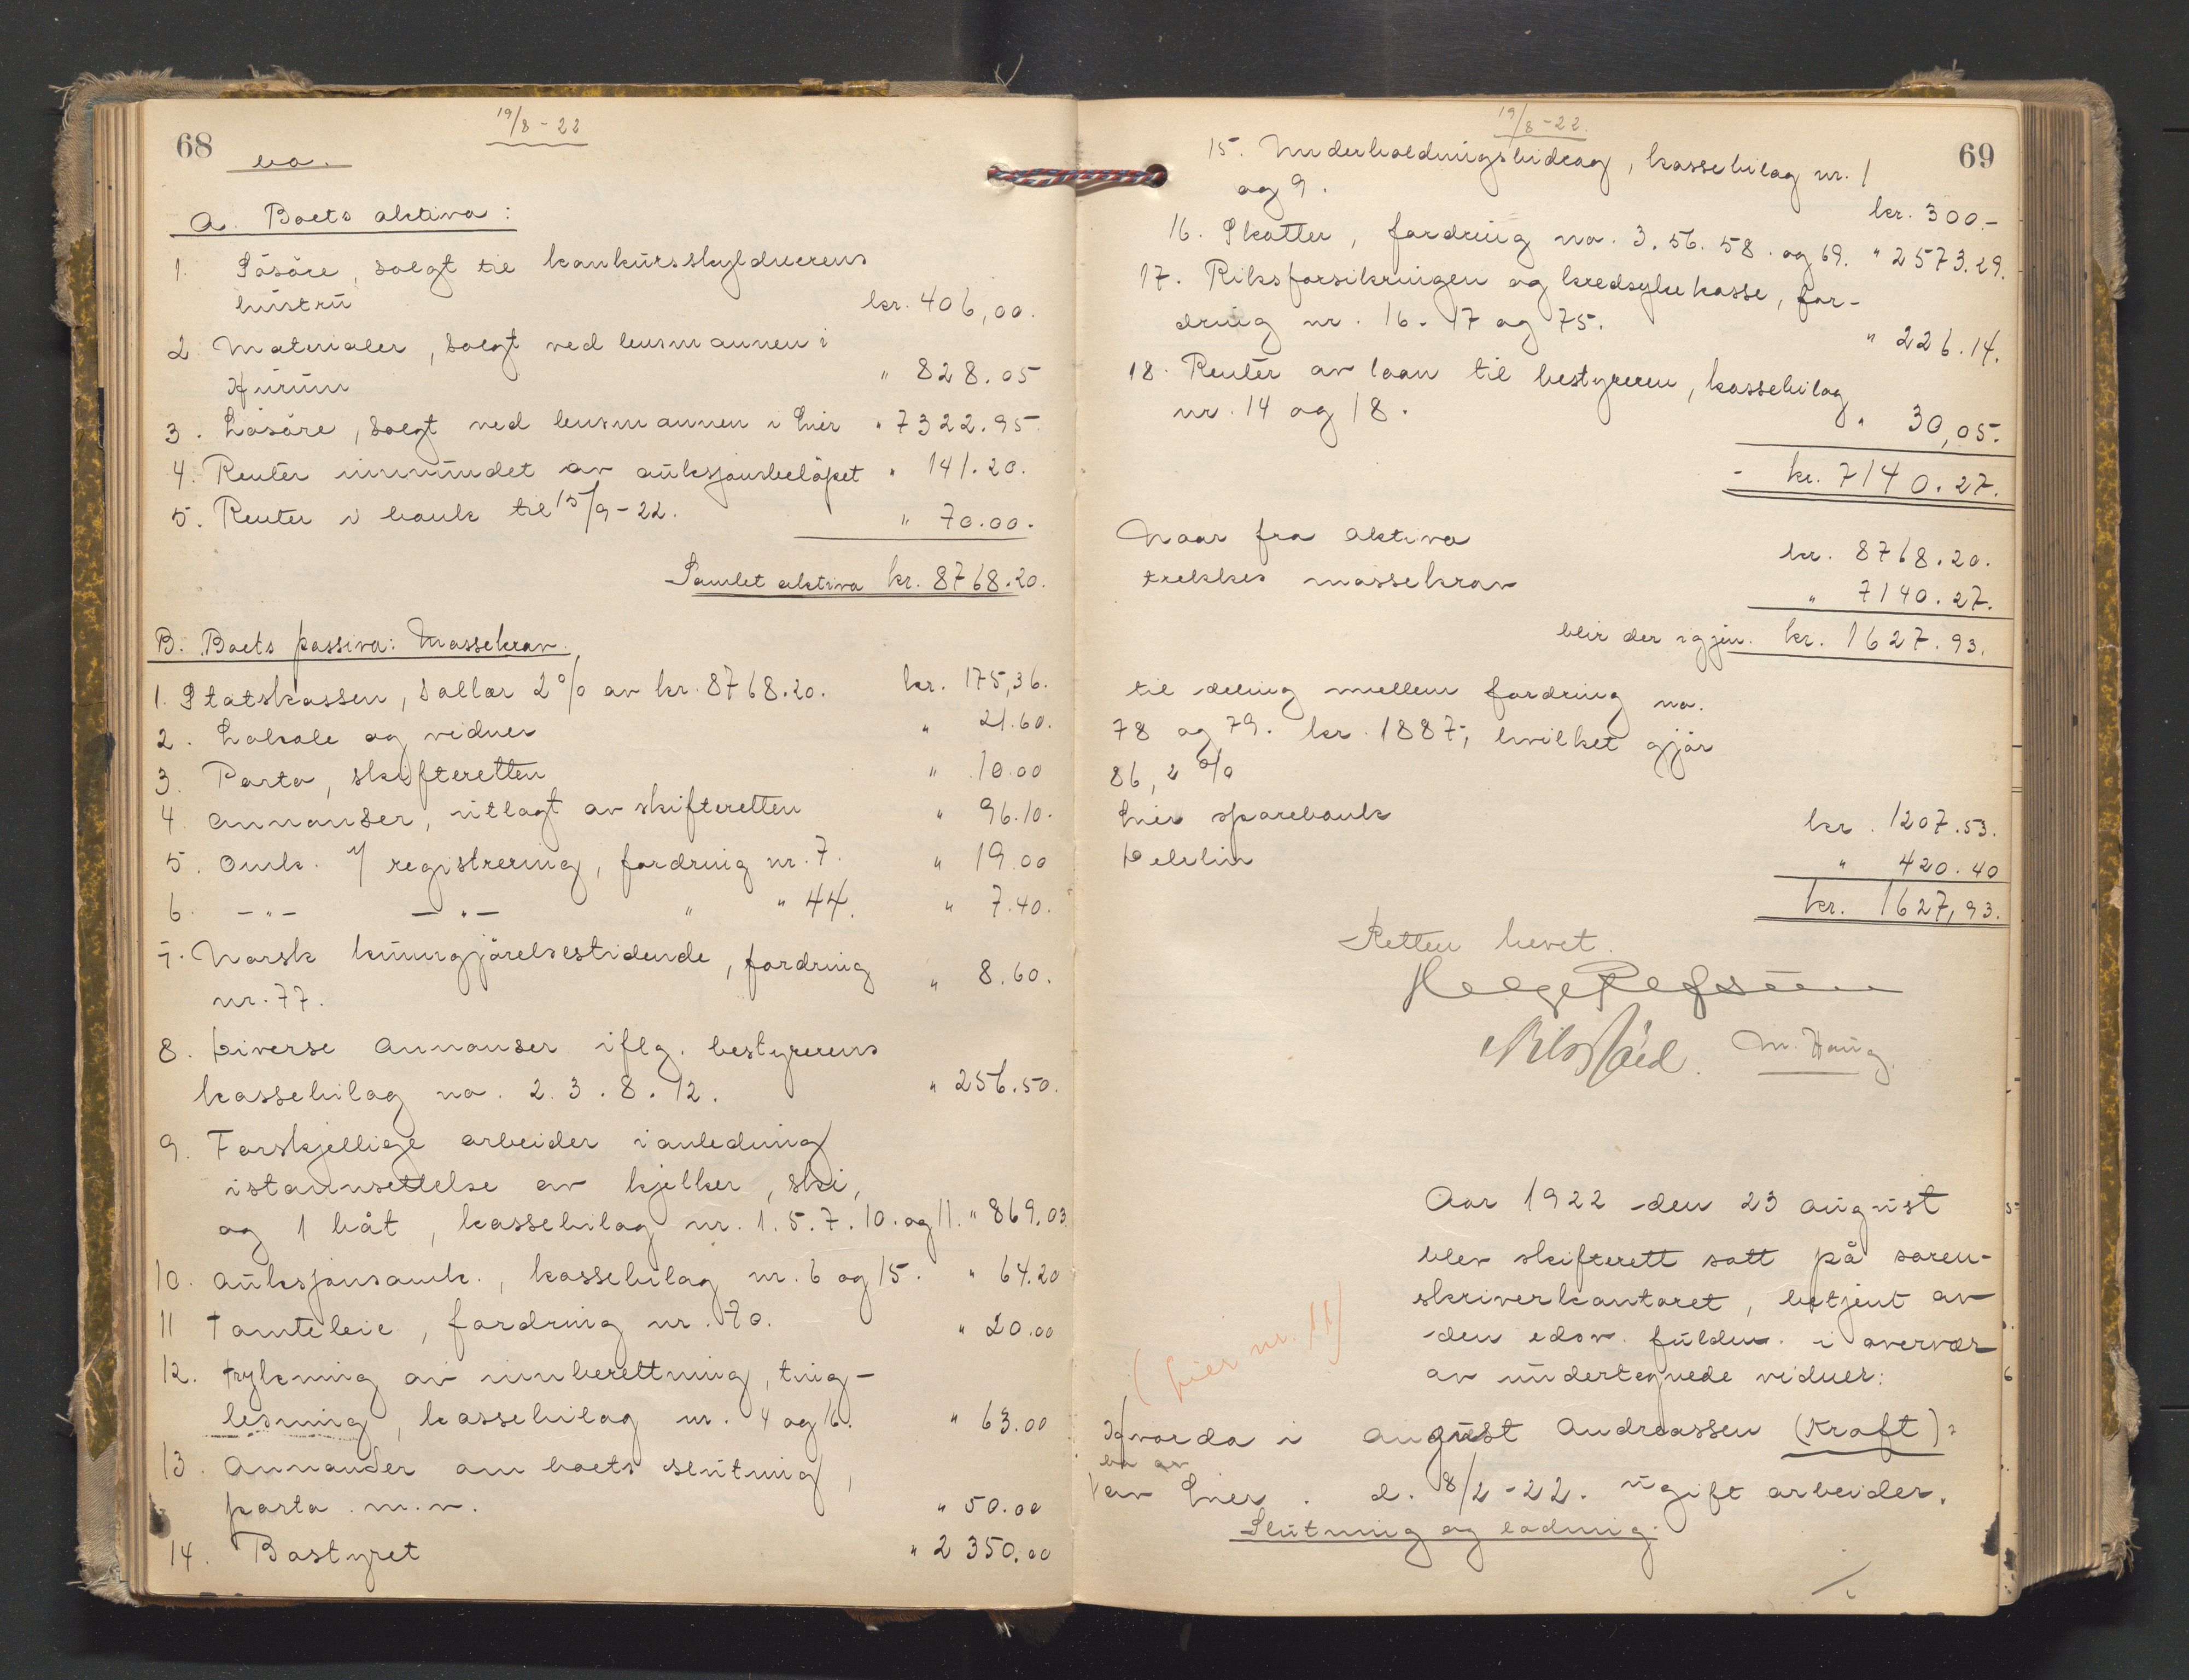 68
19/8-22
bo.
A. Boets aktiva:
1. Lösöre, solgt til konkursskyldnerens
hustru kr. 406,00.
2. Materialer, solgt ved lensmannen i
Hurum " 828.05
3. Lösöre, solgt ved lensmannen i Lier " 7322.95.
4. Renter innvundet av auksjonsbelöpet " 141.20.
5. Renter i bank til 15/9-22. " 70.00.
Samlet aktiva kr. 8768.20.
B. Boets passiva: Massekrav.
1. Statskassen, sallær 2% av kr. 8768.20. kr. 175,36.
2. Lokale og vidner " 21.60.
3. Porto, skifteretten " 10.00
4. Annonser, utlagt av skifteretten " 96.10.
5. Omk. v/ registrering, fordring nr. 7. " 19.00
6. -"- -"- " " 44. " 7.40.
7. Norsk kunngjörelsestidende, fordring
nr. 77. " 8.60.
8. Diverse annonser iflg. bestyrerens
kassebilag no. 2. 3. 8. 12. " 256.50.
9. Forskjellige arbeider i anledning
istannsettelse av kjelker, ski,
og 1 båt, kassebilag nr. 1. 5. 7. 10. og 11. " 869.03
10. Auksjonsomk., kassebilag nr. 6 og 15. " 64.20
11 Tomteleie, fordring nr. 70. " 20.00
12. Trykning av innberettning, ting-
lesning, kassebilag nr. 4 og 16. " 63.00
13. Annonser om boets slutning,
porto m.v. " 50.00
14. Bostyret " 2350.00
69
19/8-22.
15. Underholdningsbidrag, kassebilag nr. 1
og 9. kr. 300.-
16. Skatter, fordring no. 3. 56. 58. og 69. " 2573.29.
17. Riksforsikringen og kredssykekasse, for-
dring nr. 16. 17 og 75. " 226.14.
18. Renter av laan til bestyreren, kassebilag
nr. 14 og 18. " 30,05.
- kr. 7140.27.
Naar fra aktiva kr. 8768.20.
trekkes massekrav " 7140.27.
blir der igjen. kr. 1627.93.
til deling mellem fordring no.
78 og 79. kr. 1887,- hvilket gjör
86,2 %
Lier sparebank kr. 1207.53.
" 420.40
kr. 1627,93.
Retten hevet.
Helge Refsum
M. Haug
Aar 1922 den 23 august
blev skifterett satt på soren-
skriverkontoret, betjent av
den edsv. fuldm. i overvær
av undertegnede vidner:
(Lier nr. 11)
Hvorda i August Andreassen (Kraft)s
bo av
av Lier. d. 8/2-22. ugift arbeider.
Slutning og lodning.